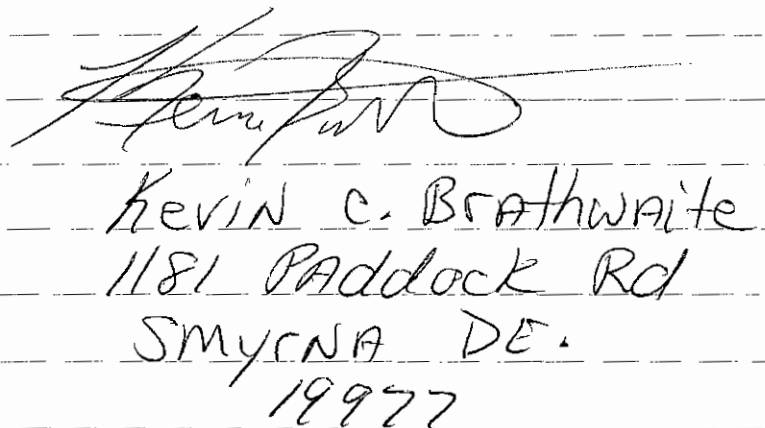 Kevin C. Brathwaite
1181 Paddock Rd
Smyrna DE.
19977